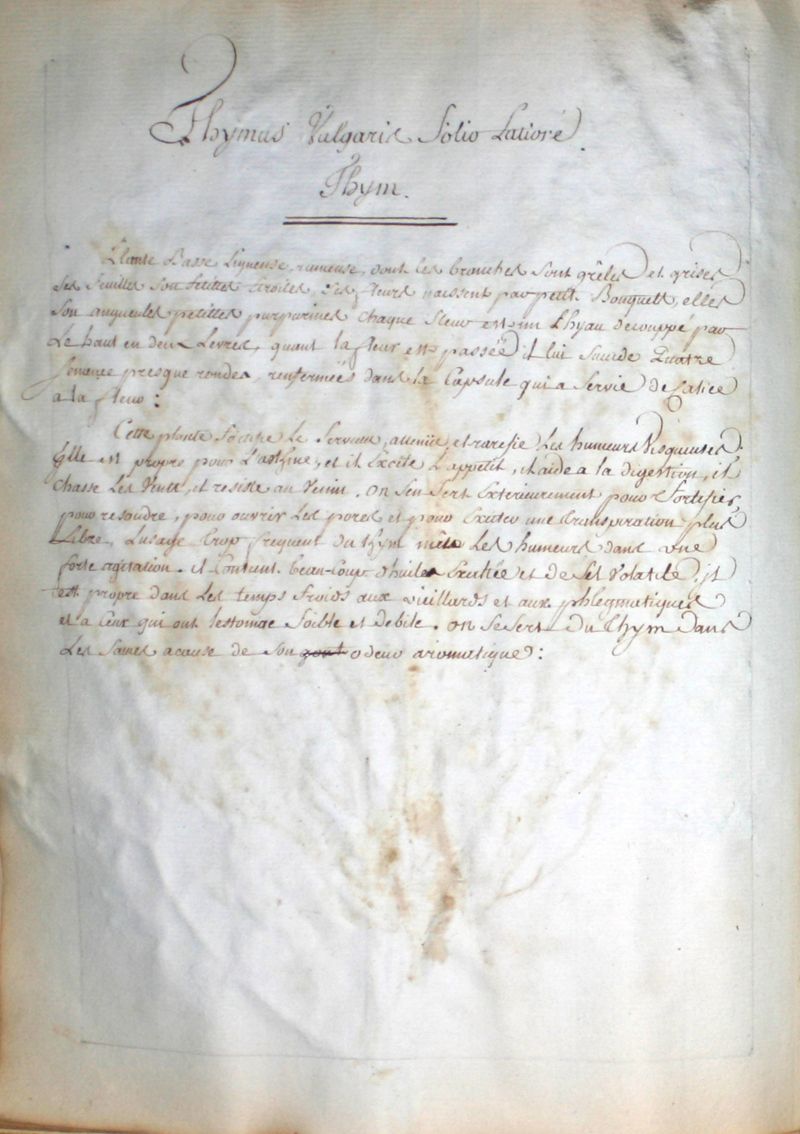 Thymus Vulgaris folio Latioré
Thym.
Plante Basse Ligneuse, rameuse, dont les branches sont grêles et grises
Ses feuilles son petites étroites, ses fleurs naissent par petit Bouquets, elles
Son petittes purpurines chaque fleur est un Thyau decouppé par
Le haut en deux Levres, quant la fleur est passée il lui succede Quatre
semence presque rondes, renfermées dans la Capsule qui a servie de Calice
a la fleur :
Cette plante Le Serveau, attenüe, et rarefie Les humeurs Visqueuses
Elle est propre pour L'asthme, et il Excite L'appetit, et aide a la digestion, il
chasse Les Vents, et resiste au Venin. On S'en Sert Exterieurement pour fortifier,
pour resoudre, pour ouvrir Les pores et pour Exciter une transpiration plus
Libre, Lusage trop frequent du thym met Les humeurs dans une
forte agitation. il Contient beau-Coup d'huile Exaltée et de Sel Volatile, il
est propre dans Les temps froids aux vieillards et aux phlegmatiques
et a Ceux qui ont lestomac foible et debile. On Se Sert du Thym dans
Les Sauces acause de Son gout odeur aromatique :